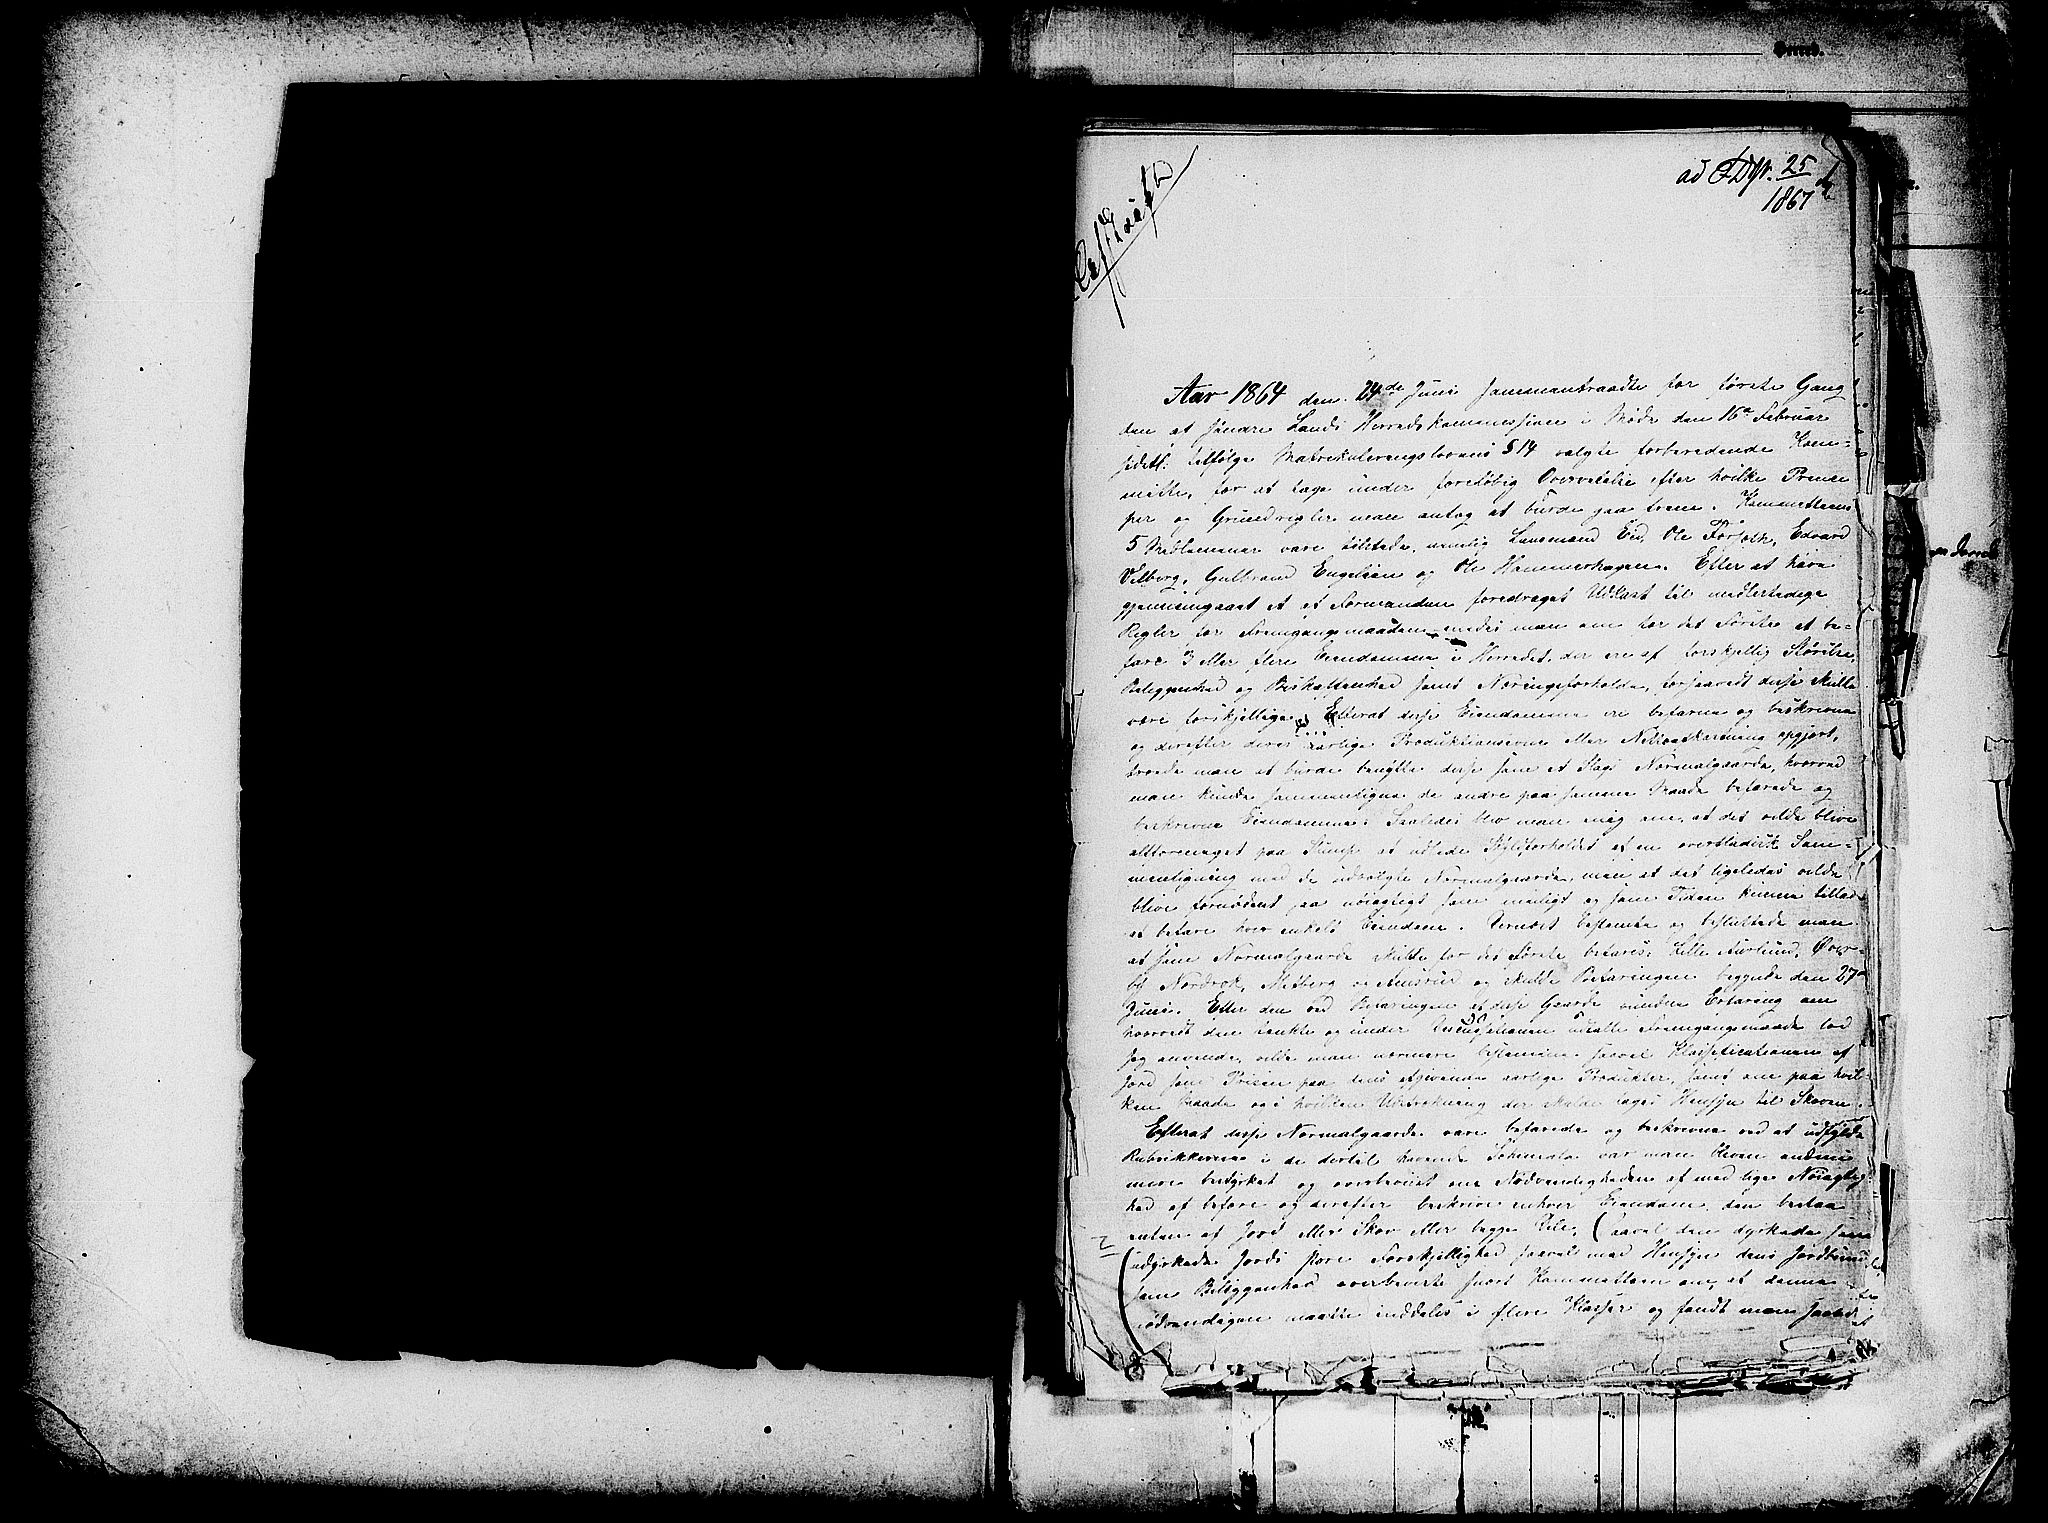 Afskrift
ad Dpr. 25
1867
Aar 1864 den 24de Juni sammentraadte for første Gang
den af søndre Lands Herredskommission i Møde den 16de Februar
sidstl: tilfølge Matrikuleringslovens § 14 valgte forberedende Kom-
mitte, for at tage under foreløbig Overveielse efter hvilke Prinsi-
per og Grundregler man antog at burde gaa frem. Kommitteens
5 Medlemmer vare tilstede, nemlig Lensmand Eid, Ole Edvard
Velborg, Gulbrand Engelsen og Ole Hammerhagen. Efter at have
gjennemgaaet et af Formanden foredraget Udkast til midlertidige
Regler for Fremgangsmaaden enedes man om for det Første at be-
fare 3 eller flere Eiendomme i Herredet, der ere af forskjellig Størrelse,
Beliggenhed og Beskaffenhed samt Næringsforholde, forsaavidt disse skulde
være forskjellige. Efterat disse Eiendomme ere befarne og beskrevne
og derefter deres aarlige Produktionsevne eller Nettoafkastning opgjort,
troede man at burde benytte disse som et Slags Normalgaarde, hvorved
man kunde sammenligne de andre paa samme Maade befarede og
beskrevne Eiendomme. Saaledes blev man enig om, at det vilde blive
altforeget paa Slump at udlede Skyldforholdet af en overfladisk Sam-
menligning med de udvalgte Normalgaarde, men at det ligeledes vilde
blive fornødent saa nøiagtigt som muligt og som Tiden kunde tillade
at befare hver enkelt Eiendom. Dernæst bestemte og besluttede man
at som Normalgaarde skulde for det Første befares: Lille Aurlund, Øvre
Nordrok, Melberg og Amsrud og skulde Befaringen begynde den 27de
Juni. Efter den ved Befaringen af disse Gaarde vundne Erfaring om
hvorvidt den tænkte og under Discussionen udtalte Fremgangsmaade lod
sig anvende, vilde man nærmere bestemme saavel Klassificationen af
Jord som Prisen paa dens afgivende aarlige Produkter, samt om paa hvil-
ken Maade og i hvilken Udstrækning der skulde tages Hensyn til Skoven.
Efterat disse Normalgaarde vare befarede og beskrevne ved at udfylde
Rubrikkerne i de dertil havende Schemata var man bleven endnu
mere bestyrket og overbevist om Nødvendigheden af med lige Nøiagtig-
hed at befare og derefter beskrive enhver Eiendom, den bestaa
enten af Jord eller Skov eller begge Dele. (Saavel den dyrkede som
udyrkede Jords store Forskjellighed saavel med Hensyn dens Jordbund
som Beliggenhed overbeviste snart Kommitteen om, at denne
nødvendigen maatte inddeles i flere Klasser og fandt man